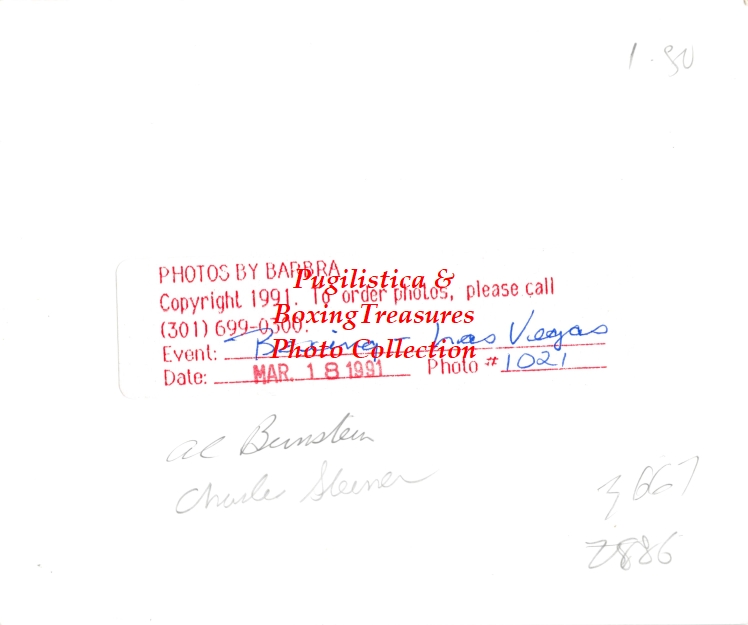 1.90
PHOTOS BY BARBRA
Copyright 1991. To order photos, please call
(301) 699-0300.
Event: Boxing - Las Vegas
Date: MAR. 18 1991 Photo # 1021
Pugilistica &
BoxingTreasures
Photo Collection
Al Bernstein
Charles Steiner
3667
Z886